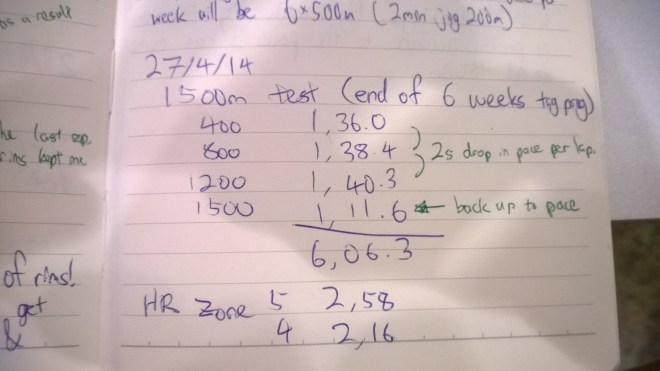 as a result
he last rep
rins kept me
of rins!
get
&
week will be 6×500m (2min jog 200m)
27/4/14
1500m test (end of 6 weeks trg prog)
400 1,36.0
800 1,38.4 2s drop in pace per lap.
1200 1,40.3
1500 1,11.6 ← back up to pace
6,06.3
HR Zone 5 2,58
4 2,16